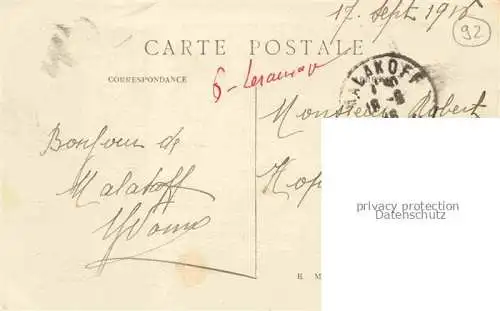 17. Sept 1916
92
CARTE POSTALE
CORRESPONDANCE
6 -
MALAKOFF
Monsieur Robert
Bonjour de
Malakoff
Yvonne
privacy protection
Datenschutz